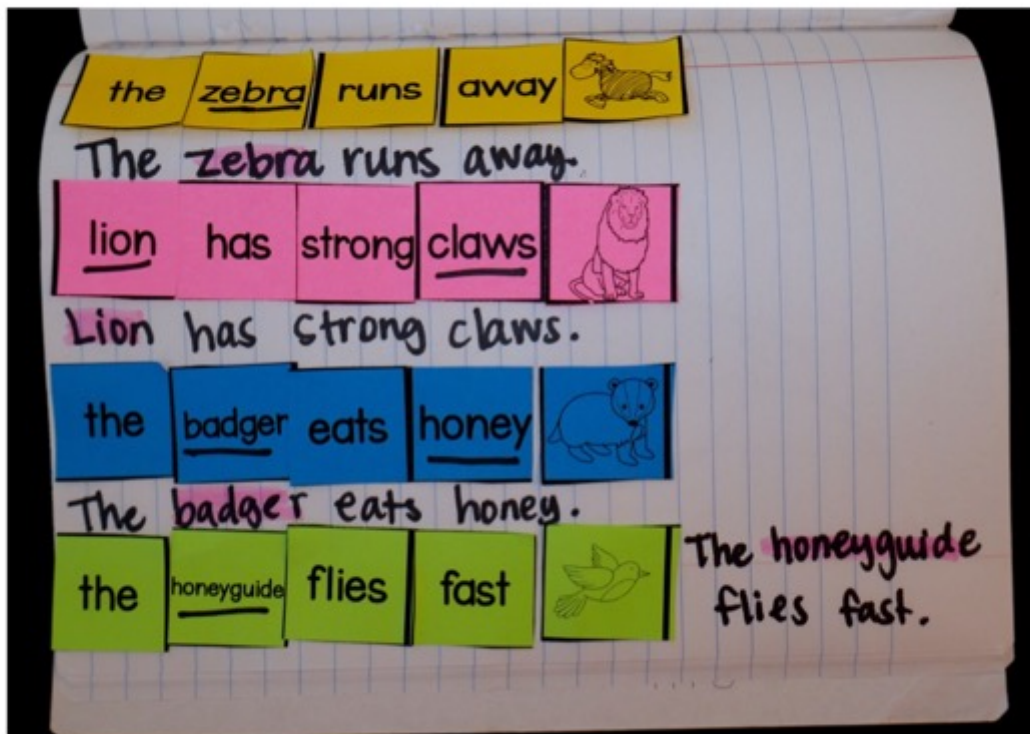 the zebra runs away
The zebra runs away.
lion has strong claws
Lion has strong claws.
the badger eats honey
The badger eats honey.
the honeyguide flies fast
The honeyguide
flies fast.